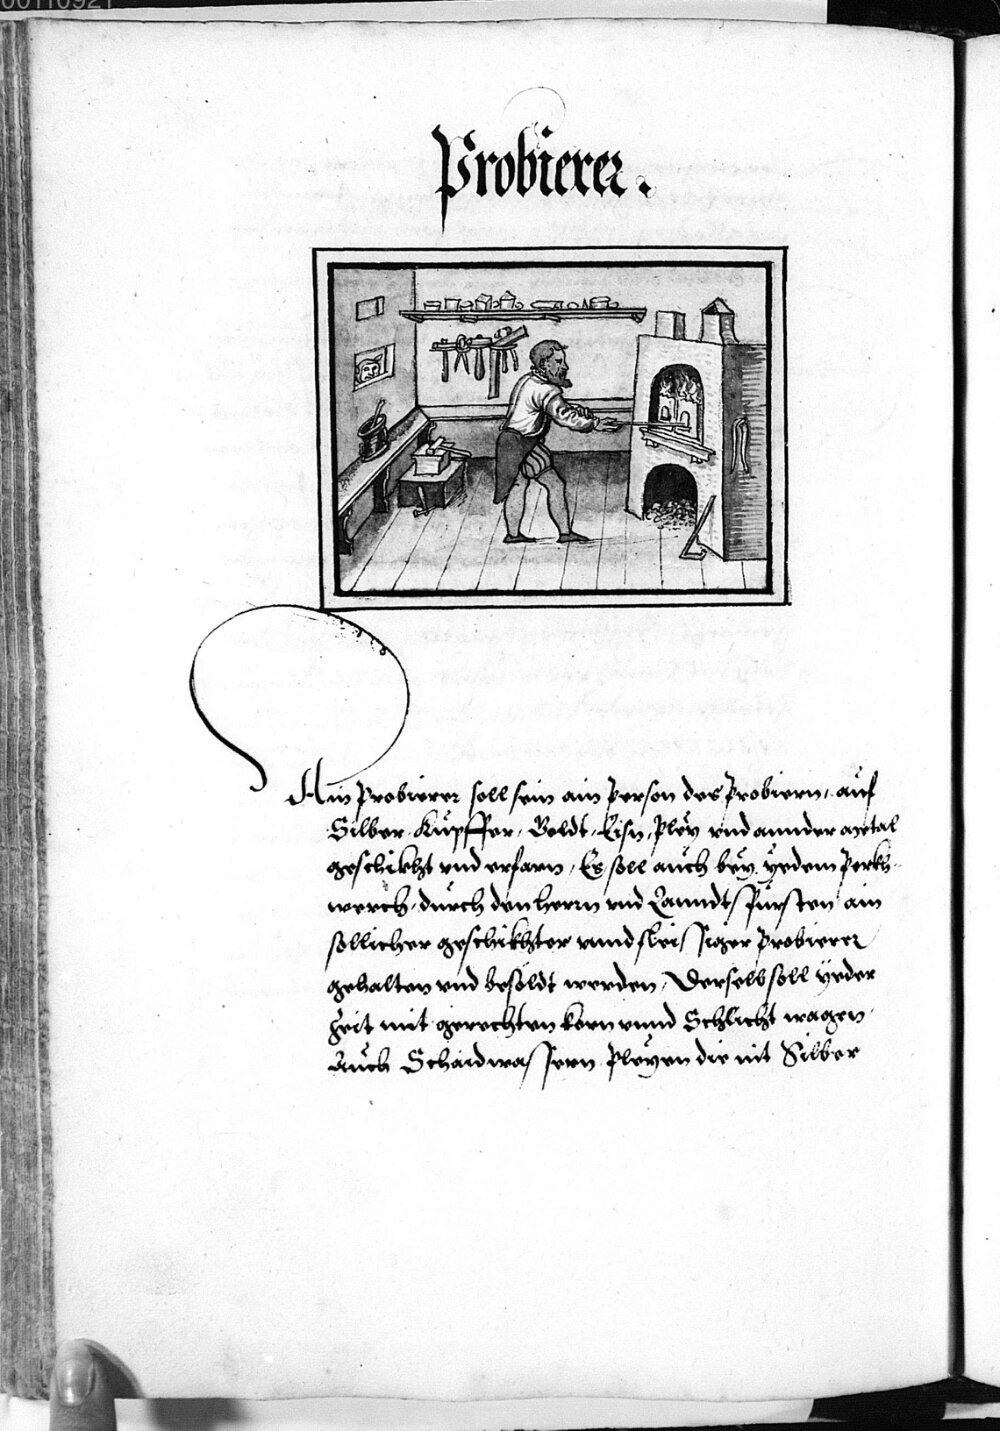 00110921
Probierer.
Ain Probierer soll sein ain Person des Probiern, auf
Silber, Kupffer, Goldt, Eisn, Pley vnd annder metal
geschikht vnd erfarn, Es soll auch bey yedem Perkh-
werch, durch den Herrn vnd Lanndtsfürsten ain
sollicher geschikhter vnnd fleissiger Probierer
gehalten vnd besöldt werden, Derselb soll yeder
Zeit mit gerechten korn vnnd Schlicht wagen,
Auch Schaidwassern Pleyen die nit Silber